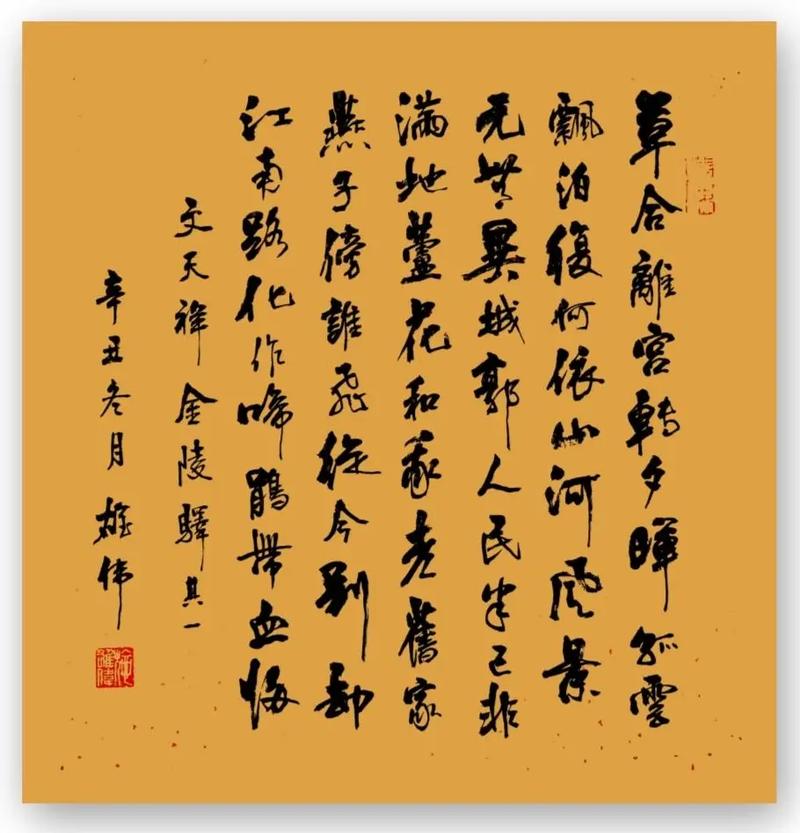 草合離宮轉夕暉孤雲
飄泊復何依山河風景
元無異城郭人民半已非
滿地蘆花和我老舊家
燕子傍誰飛從今別却
江南路化作啼鵑帶血歸
文天祥金陵驛其一
辛丑冬月雄伟